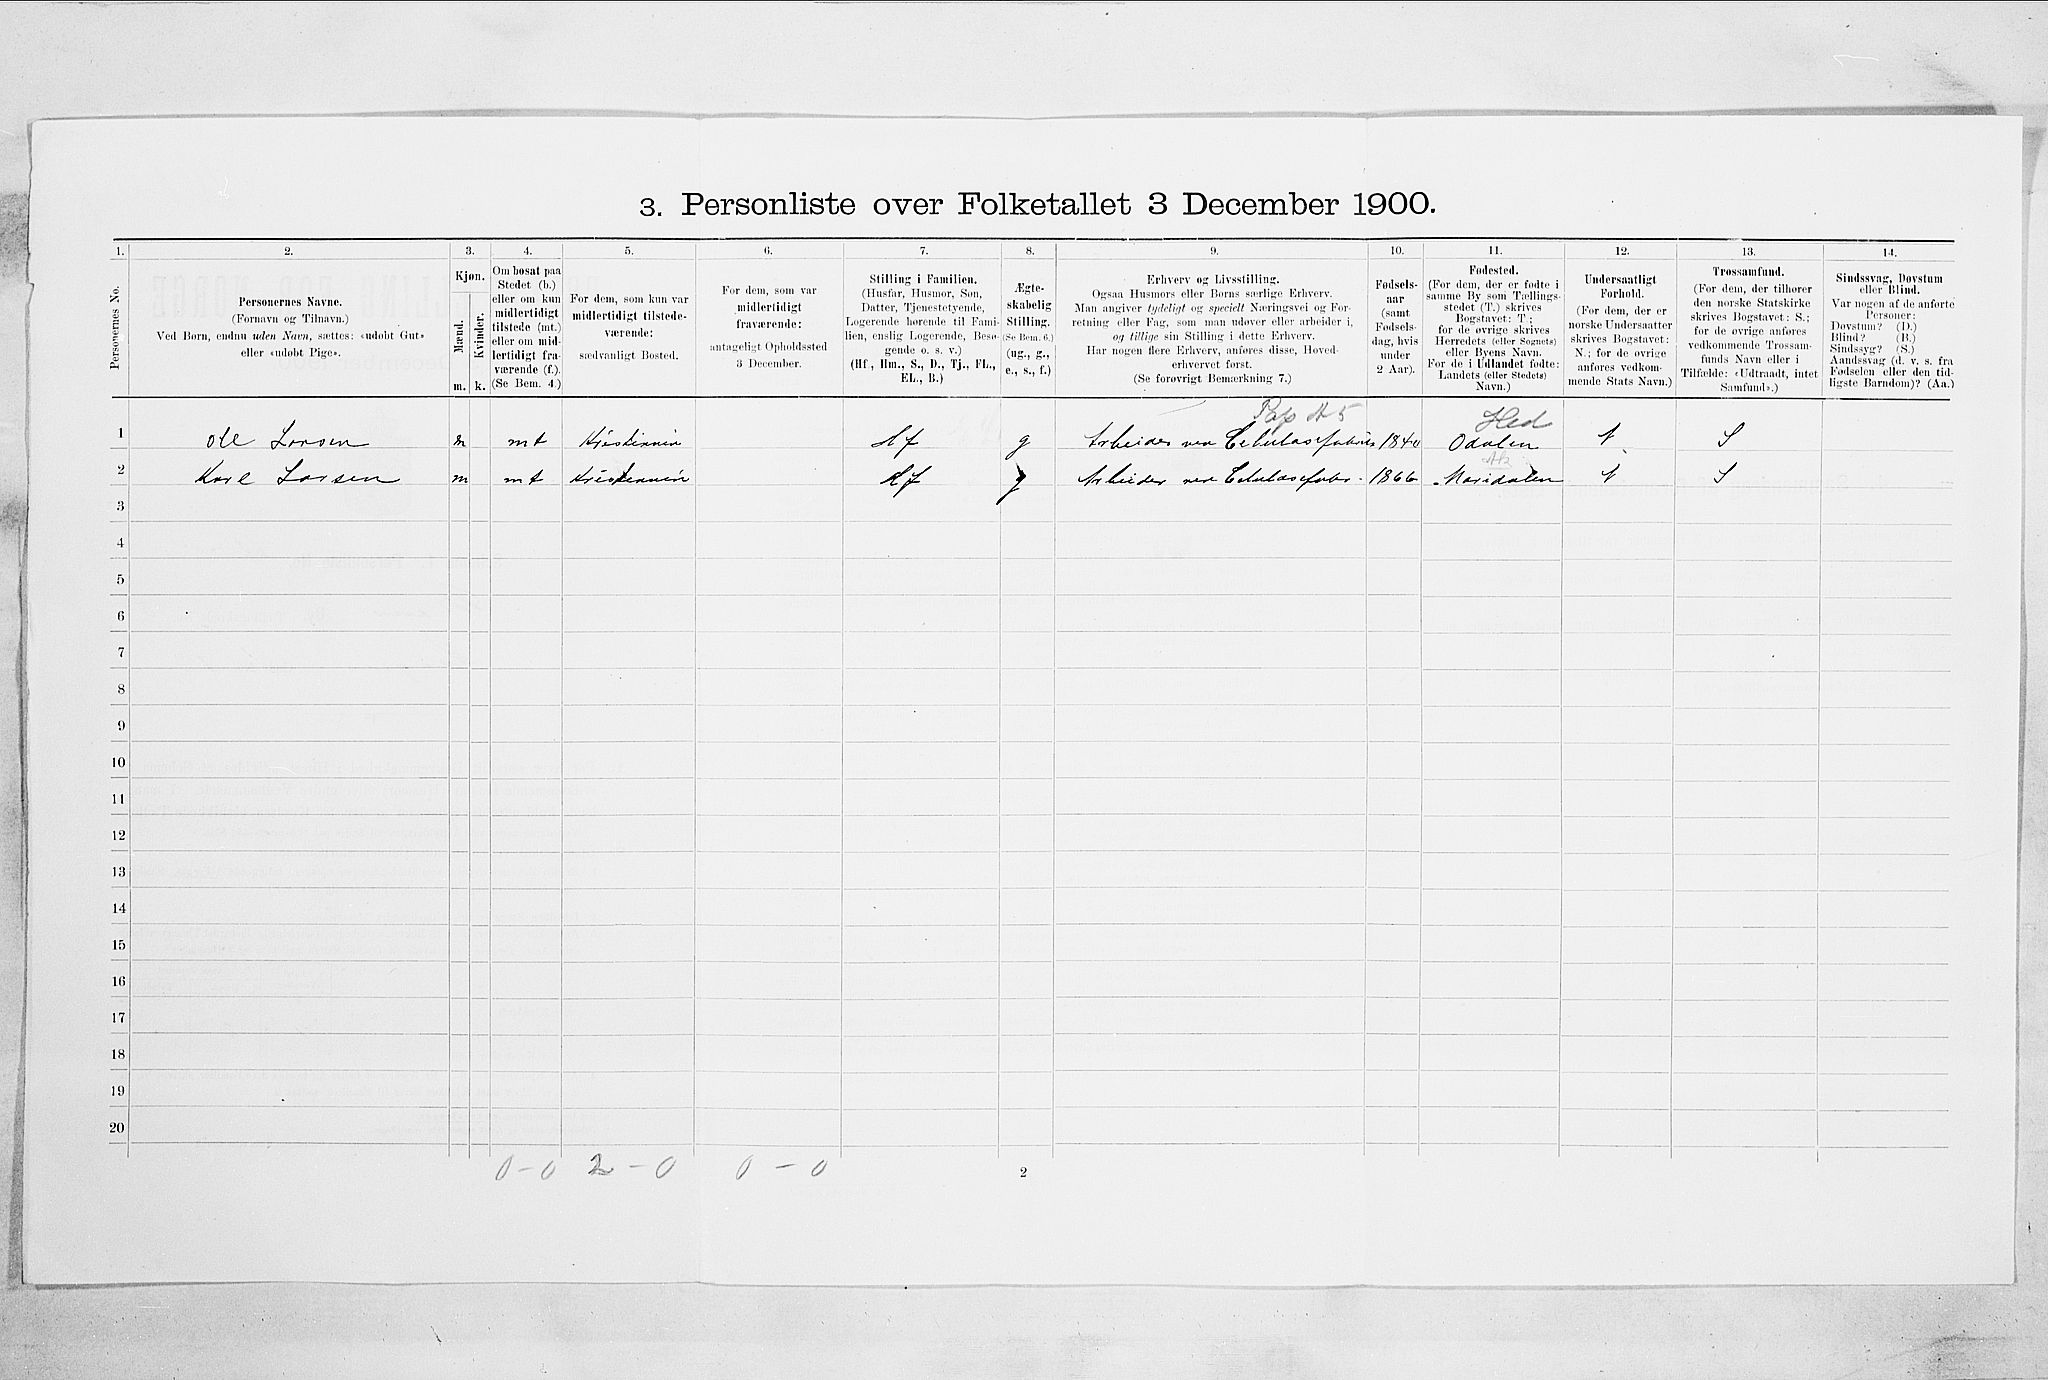 3. Personliste over Folketallet 3 December 1900.
1. 2. 3. 4. 5. 6. 7. 8. 9. 10. 11. 12. 13. 14.
Personernes No.
Personernes Navne.
(Fornavn og Tilnavn.)
Ved Børn, endnu uden Navn, sættes: «udøbt Gut»
eller «udøbt Pige».
Kjøn.
Mænd.
Kvinder.
m. k.
Om bosat paa
Stedet (b.)
eller om kun
midlertidigt
tilstede (mt.)
eller om mid-
lertidigt fra-
værende (f.).
(Se Bem. 4.)
For dem, som kun var
midlertidigt tilstede-
værende:
sædvanligt Bosted.
For dem, som var
midlertidigt
fraværende:
antageligt Opholdssted
3 December.
Stilling i Familien.
(Husfar, Husmor, Søn,
Datter, Tjenestetyende,
Logerende hørende til Fami-
lien, enslig Logerende, Besø-
gende o. s. v.)
(Hf., Hm., S., D., Tj., FL.,
EL., B.)
Ægte-
skabelig
Stilling.
(Se Bem. 6.)
(ug., g.,
e., s., f.)
Erhverv og Livsstilling.
Ogsaa Husmors eller Børns særlige Erhverv.
Man angiver tydeligt og specielt Næringsvei og For-
retning eller Fag, som man udøver eller arbeider i,
og tillige sin Stilling i dette Erhverv.
Har nogen flere Erhverv, anføres disse, Hoved-
erhvervet først.
(Se forøvrigt Bemærkning 7.)
Fødsels-
aar
(samt
Fødsels-
dag, hvis
under
2 Aar).
Fødested.
(For dem, der er fødte i
samme By som Tællings-
stedet (T.) skrives
Bogstavet: T.;
for de øvrige skrives
Herredets (eller Sognets)
eller Byens Navn.
For de i Udlandet fødte:
Landets (eller Stedets)
Navn.)
Undersaatligt
Forhold.
(For dem, der er
norske Undersaatter
skrives Bogstavet:
N.; for de øvrige
anføres vedkom-
mende Stats Navn.)
Trossamfund.
(For dem, der tilhører
den norske Statskirke
skrives Bogstavet: S.;
for de øvrige anføres
vedkommende Trossam-
funds Navn eller i
Tilfælde: «Udtraadt, intet
Samfund».)
Sindssvag, Døvstum
eller Blind.
Var nogen af de anførte
Personer:
Døvstum? (D.)
Blind? (B.)
Sindssyg? (S.)
Aandssvag (d. v. s. fra
Fødselen eller den tid-
ligste Barndom)? (Aa.)
Pap A 5 Hed
1 Ole Larsen m mt Kristiania Hf g Arbeider ved Celulosefabrik 1840 Odalen N S
Ak
2 Karl Larsen m mt Kristiania Hf g Arbeider ved Celulosefabr. 1866 Maridalen N S
3
4
5
6
7
8
9
10
11
12
13
14
15
16
17
18
19
20
0-0 2-0 0-0 2